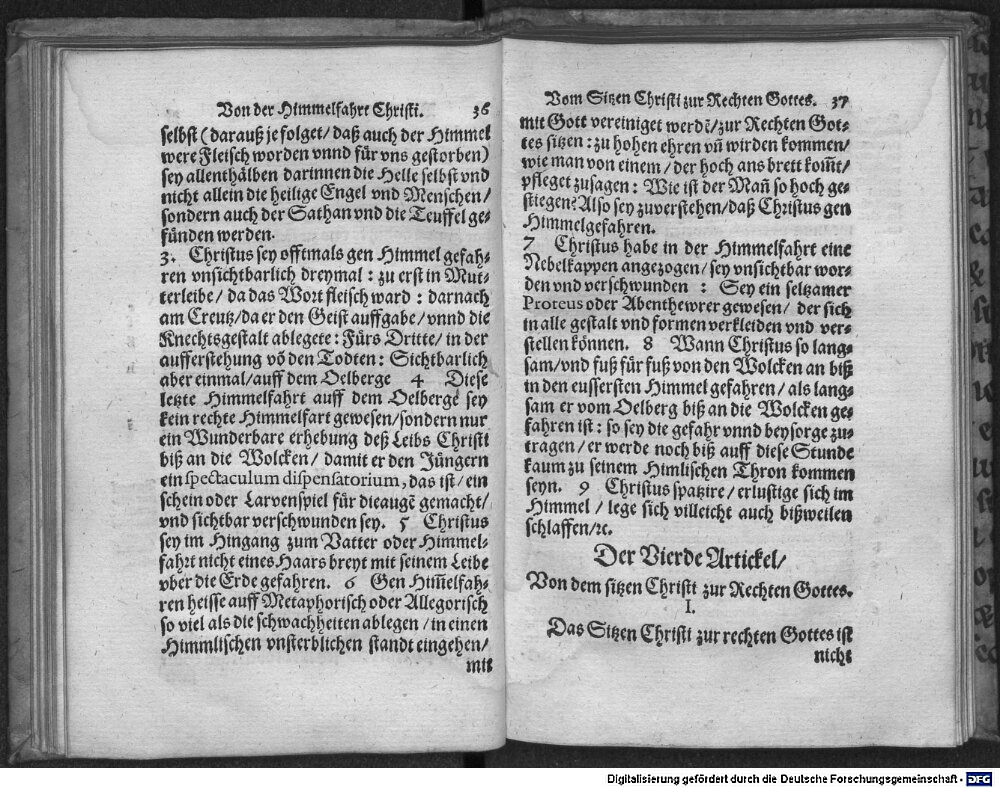 Von der Himmelfahrt Christi. 36
selbst (darauß je folget/ daß auch der Himmel
were Fleisch worden vnnd für vns gestorben)
sey allenthälben darinnen die Helle selbst vnd
nicht allein die heilige Engel vnd Menschen/
sondern auch der Sathan vnd die Teuffel ge-
fünden werden.
3. Christus sey offtmals gen Himmel gefah-
ren vnsichtbarlich dreymal: zu erst in Mut-
terleibe/ da das Wort fleisch ward: darnach
am Creutz/ da er den Geist auffgabe/ vnnd die
Knechtsgestalt ablegete: Fürs Dritte/ in der
aufferstehung võ den Todten: Sichtbarlich
aber einmal/ auff dem Oelberge 4 Diese
letzte Himmelfahrt auff dem Oelberge sey
kein rechte Himmelfart gewesen/ sondern nur
ein Wunderbare erhebung deß Leibs Christi
biß an die Wolcken/ damit er den Jüngern
ein spectaculum dispensatorium, das ist/ ein
schein oder Larvenspiel für die augẽ gemacht/
vnd sichtbar verschwunden sey. 5 Christus
sey im Hingang zum Vatter oder Himmel-
fahrt nicht eines Haars breyt mit seinem Leibe
vber die Erde gefahren. 6 Gen Him̃elfah-
ren heisse auff Metaphorisch oder Allegorisch
so viel als die schwachheiten ablegen/ in einen
Himmlischen vnsterblichen standt eingehen/
mit
Vom Sitzen Christi zur Rechten Gottes. 37
mit Gott vereiniget werdẽ/ zur Rechten Got-
tes sitzen: zu hohen ehren vñ wirden kommen/
wie man von einem/ der hoch ans brett kom̃t/
pfleget zusagen: Wie ist der Mañ so hoch ge-
stiegen? Also sey zuverstehen/ daß Christus gen
Himmel gefahren.
7 Christus habe in der Himmelfahrt eine
Nebelkappen angezogen/ sey vnsichtbar wor-
den vnd verschwunden: Sey ein seltzamer
Proteus oder Abenthewrer gewesen/ der sich
in alle gestalt vnd formen verkleiden vnd ver-
stellen können. 8 Wann Christus so lang-
sam/ vnd fuß für fuß von den Wolcken an biß
in den eussersten Himmel gefahren/ als lang-
sam er vom Oelberg biß an die Wolcken ge-
fahren ist: so sey die gefahr vnnd beysorge zu-
tragen/ er werde noch biß auff diese Stunde
kaum zu seinem Himlischen Thron kommen
seyn. 9 Christus spatzire/ erlustige sich im
Himmel/ lege sich villeicht auch bißweilen
schlaffen/ ꝛc.
Der Vierde Artickel/
Von dem sitzen Christi zur Rechten Gottes.
I.
Das Sitzen Christi zur rechten Gottes ist
nicht
Digitalisierung gefördert durch die Deutsche Forschungsgemeinschaft - DFG